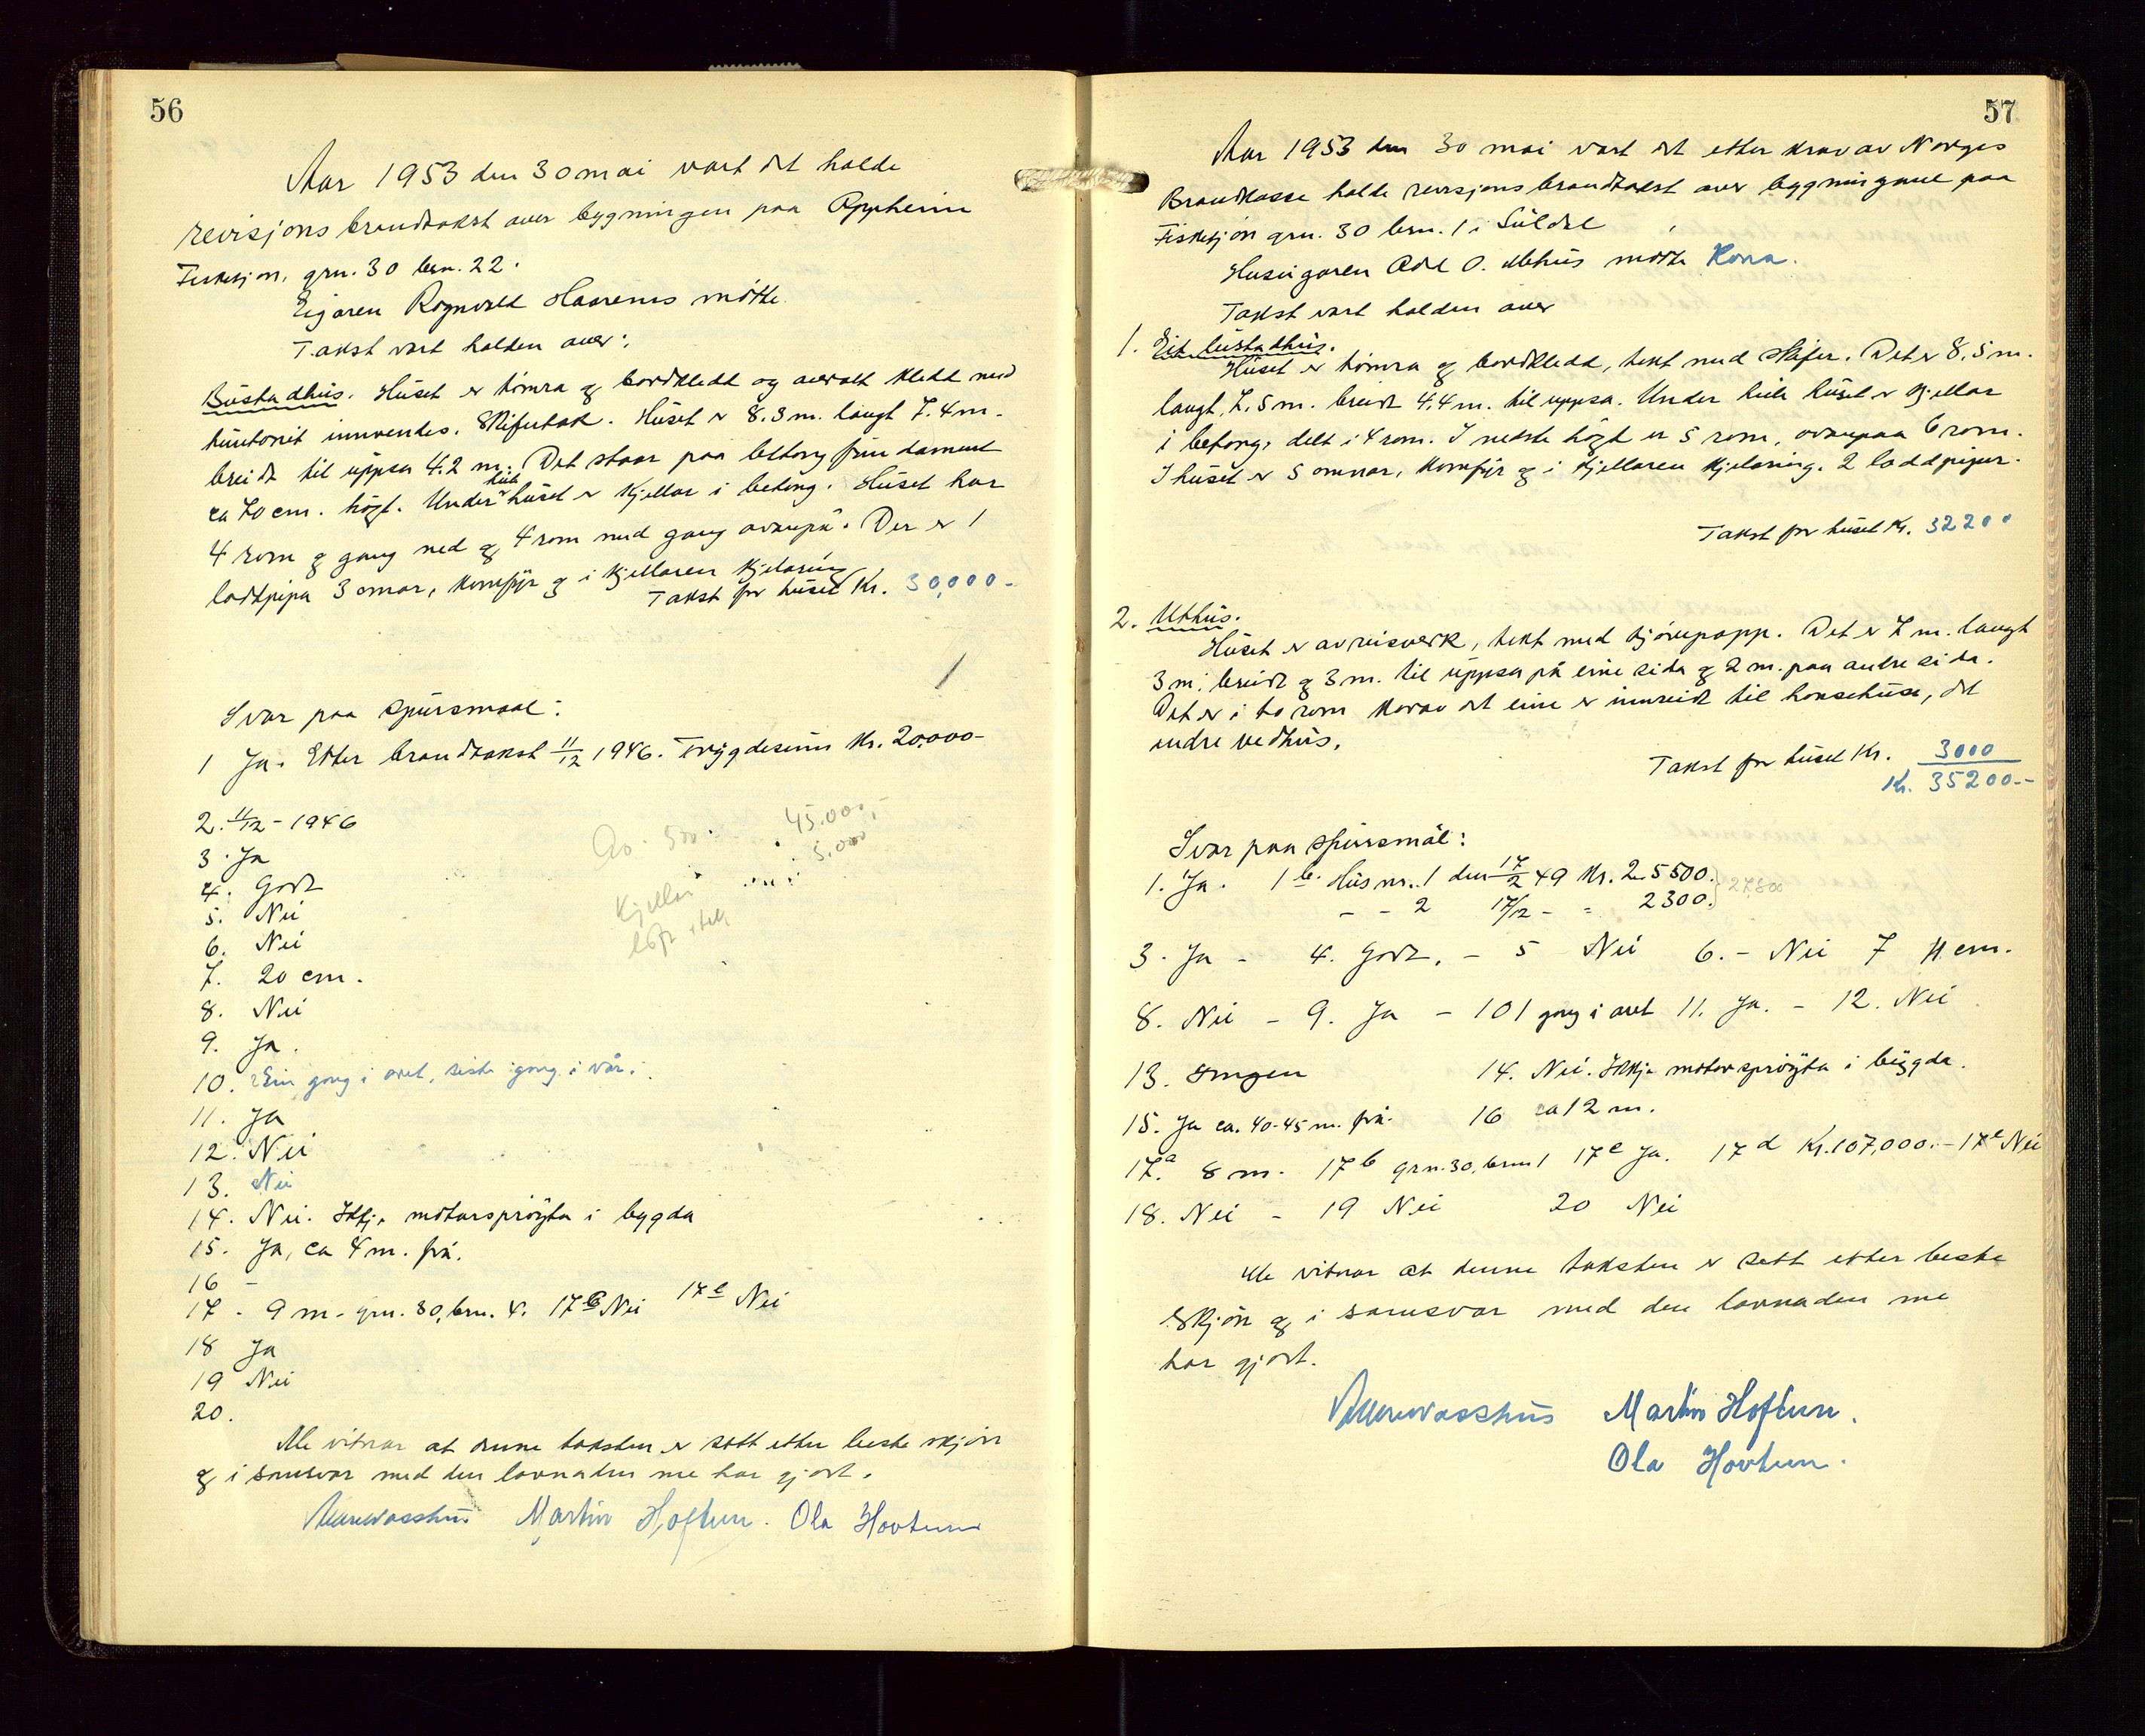 56
Aar 1953 den 30 mai vart det halde
revisjons brandtakst over bygningen paa Oppheim
Fiskesjøn, grn. 30 brn. 22.
Eigaren Rognvald Haarens møtte.
Takst vart halden over:
Bustadhus. Huset er tømra og bordkledd og overalt kledd med
huntonit innvendes. Skifertak. Huset er 8.3 m. langt 7.4 m.
breidt til uppsa 4.2 m. Det staar paa betong fundament
ca 70 cm. høgt. Under heile huset er kjellar i betong. Huset har
4 rom og gang ned og 4 rom med gang ovanpå. Der er 1
laddpipa 3 omnar, komfyr og i kjellaren kjelaring
Takst for huset Kr. 30,000-
Svar paa spursmaal:
1 Ja. Etter brandtakst 11/12 1946. Trygdesum Kr. 20,000-
2. 11/12 - 1946
45.000,-
3. Ja
5.000
4. Godt
Kjellar
5. Nei
6. Nei
7. 20 cm.
8. Nei
9. Ja.
10. Ein gong i aret, siste gong i vår.
11. Ja
12. Nei
13. Nei
14. Nei. Ikkje motorsprøyta i bygda
15. Ja, ca 4 m. frå.
16 -
17 - 9 m - grn. 30, brn. 4. 17 B Nei 17 e Nei
18 Ja
19 Nei
20.
Me vitnar at denne taksten er sett etter beste skjøn
og i samsvar med den lovnaden me har gjort.
Martin Hoftun. Ola Hovtun
57
Aar 1953 den 30 mai vart det etter krav av Norges
Brandkasse halde revisjons brandtakst over bygningane paa
Fiskesjøn grn. 30 brn. 1 i Suldal
Huseigaren Odd O. Mehus møtte Kona.
Takst vart halden over
1. Eit bustadhus.
Huset er tømra og bordkledd, tekt med skifer. Det er 8,5 m.
langt, 7,5 m. breidt 4,4 m. til uppsa. Under heile huset er kjellar
i betong, delt i 4 rom. I nedste høgd er 5 rom, ovanpaa 6 rom.
I huset er 5 omnar, komfyr og i kjellaren kjelaring. 2 laddpipur.
Takst for huset Kr. 32200
2. Uthus.
Huset er av reisverk, tekt med tjørepapp. Det er 7 m. langt
3 m. breidt og 3 m. til uppsa på eine sida og 2 m. paa andre sida.
Det er i to rom korav det eine er innreidt til hønsehus, det
andre vedhus.
Takst for huset Kr. 3000
Kr. 35200--
Svar paa spursmål:
1. Ja. 1 b. Hus nr. 1 den 17/2 49 Kr. 25500. 27,800
- - 2 17/2 - = 2300.
3. Ja - 4. Godt. - 5 Nei 6. - Nei 7 11 cm.
8. Nei - 9. Ja - 10 1 gong i aret 11. Ja. - 12. Nei
13. Ingen 14. Nei. Ikkje motorsprøyta i bygda.
15. Ja ca. 40-45 m. frå. 16 ca 12 m.
17.a 8 m. 17 b grn. 30, brn 1 17 c Ja. 17 d Kr. 107,000.- 17 e Nei
18. Nei - 19 Nei 20 Nei
Me vitnar at denne taksten er sett etter beste
skjøn og i samsvar med den lovnaden me
har gjort.
Martin Hoftun.
Ola Hovtun.